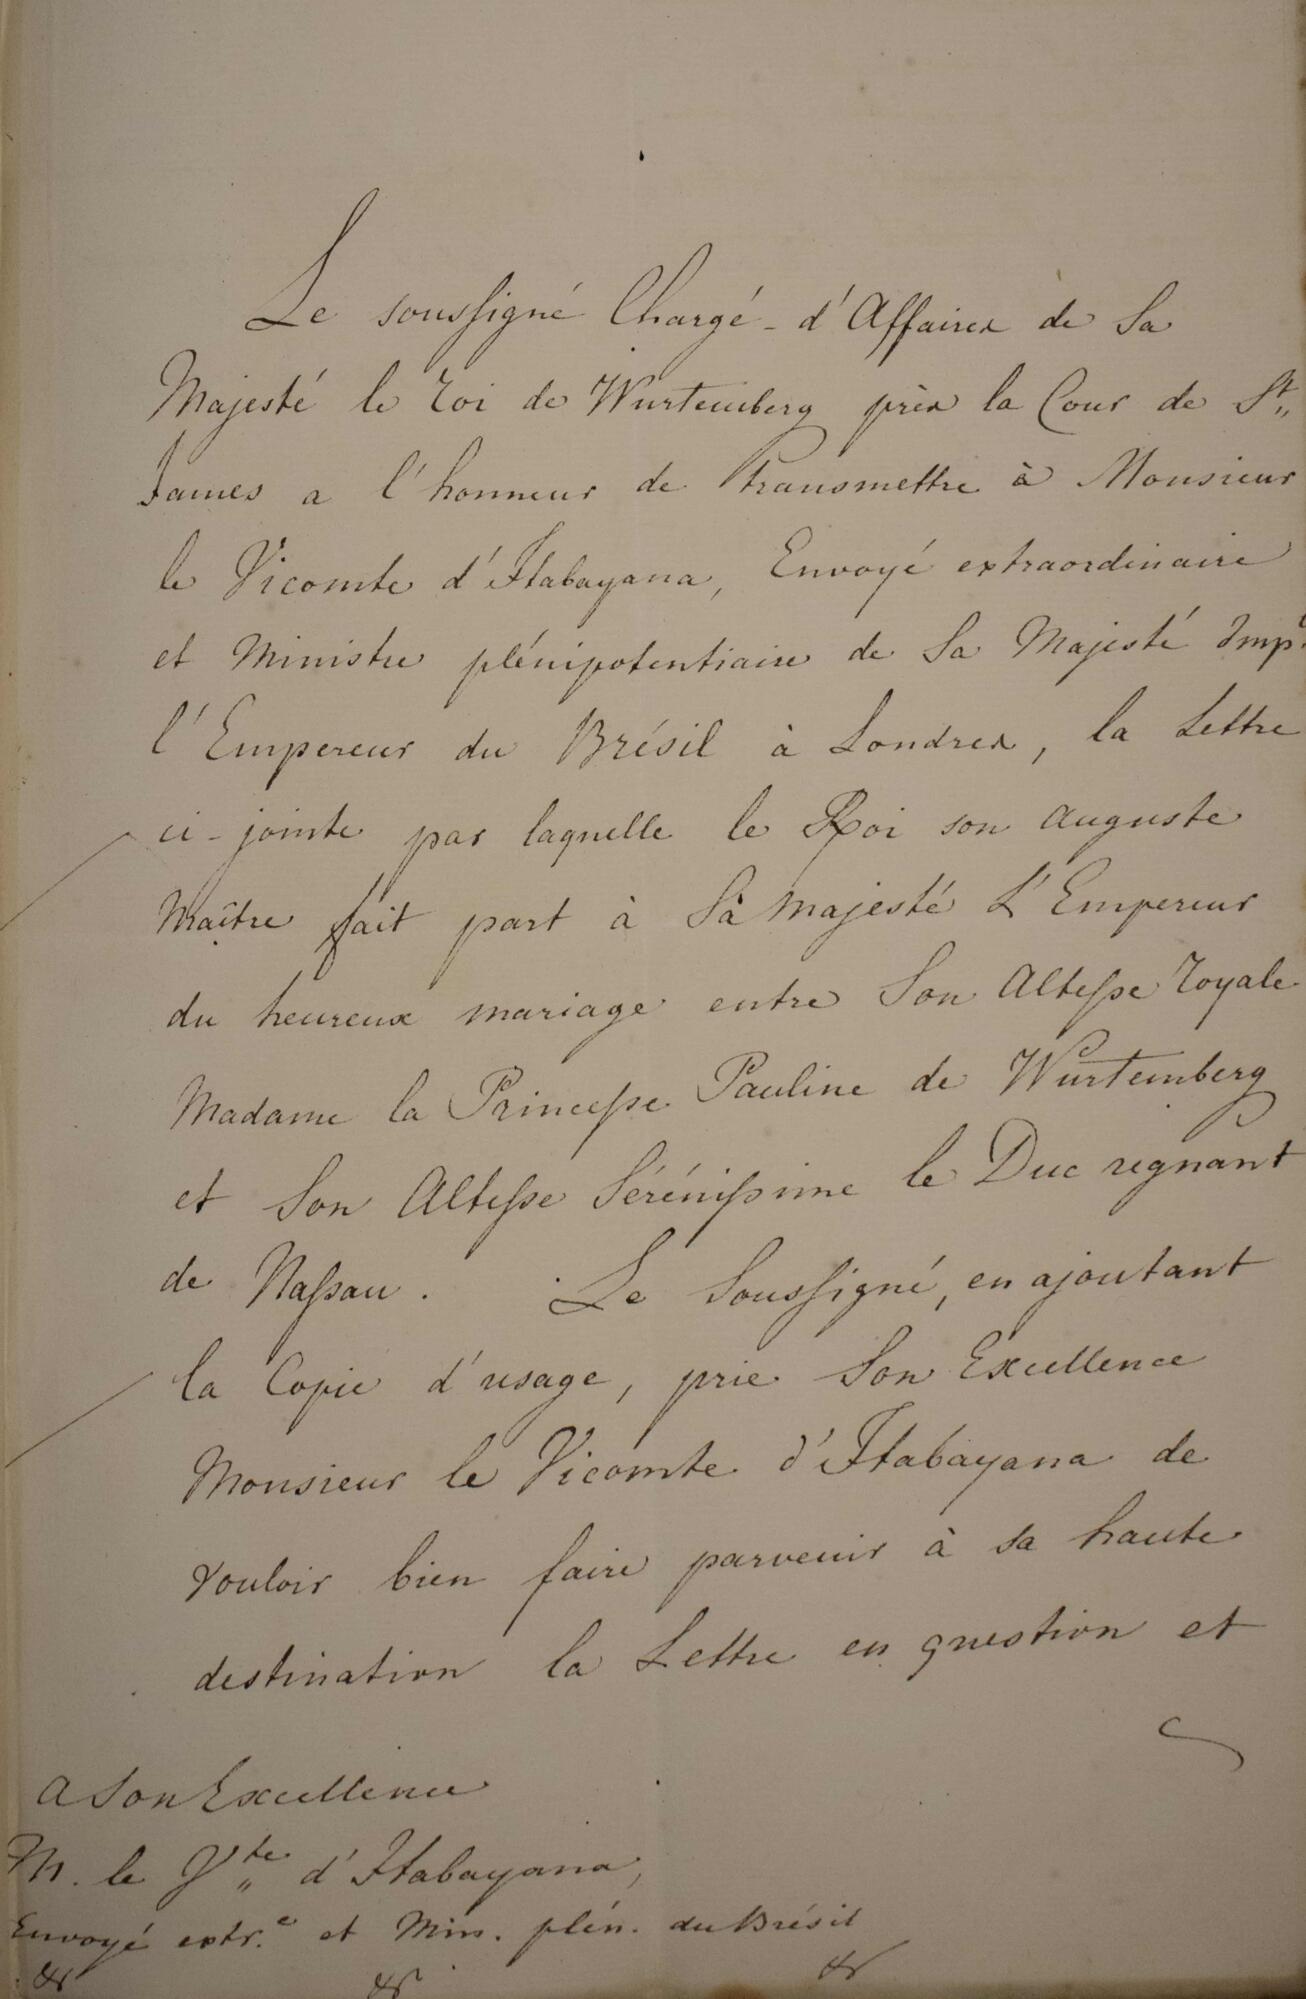 Le soussigné Chargé-d'Affaires de Sa
Majesté le roi de Wurtemberg près la Cour de St„
James a l'honneur de transmettre à Monsieur
le Vicomte d'Itabayana, Envoyé extraordinaire
et Ministre plénipotentiaire de Sa Majesté Impl.
l'Empereur du Brésil à Londres, la Lettre
ci-jointe par laquelle le Roi son auguste
Maître fait part à Sa Majesté L'Empereur
du heureux mariage entre Son Altesse royale
Madame la Princesse Pauline de Wurtemberg
et Son Altesse Sérénissime le Duc regnant
de Nassau. Le Soussigné, en ajoutant
la Copie d'usage, prie Son Excellence
Monsieur le Vicomte d'Itabayana de
vouloir bien faire parvenir à sa haute
destination la Lettre en question et
A Son Excellence
M. le Vte„ d'Itabayana,
Envoyé extr.e et Min. plén. du Brésil
& & &